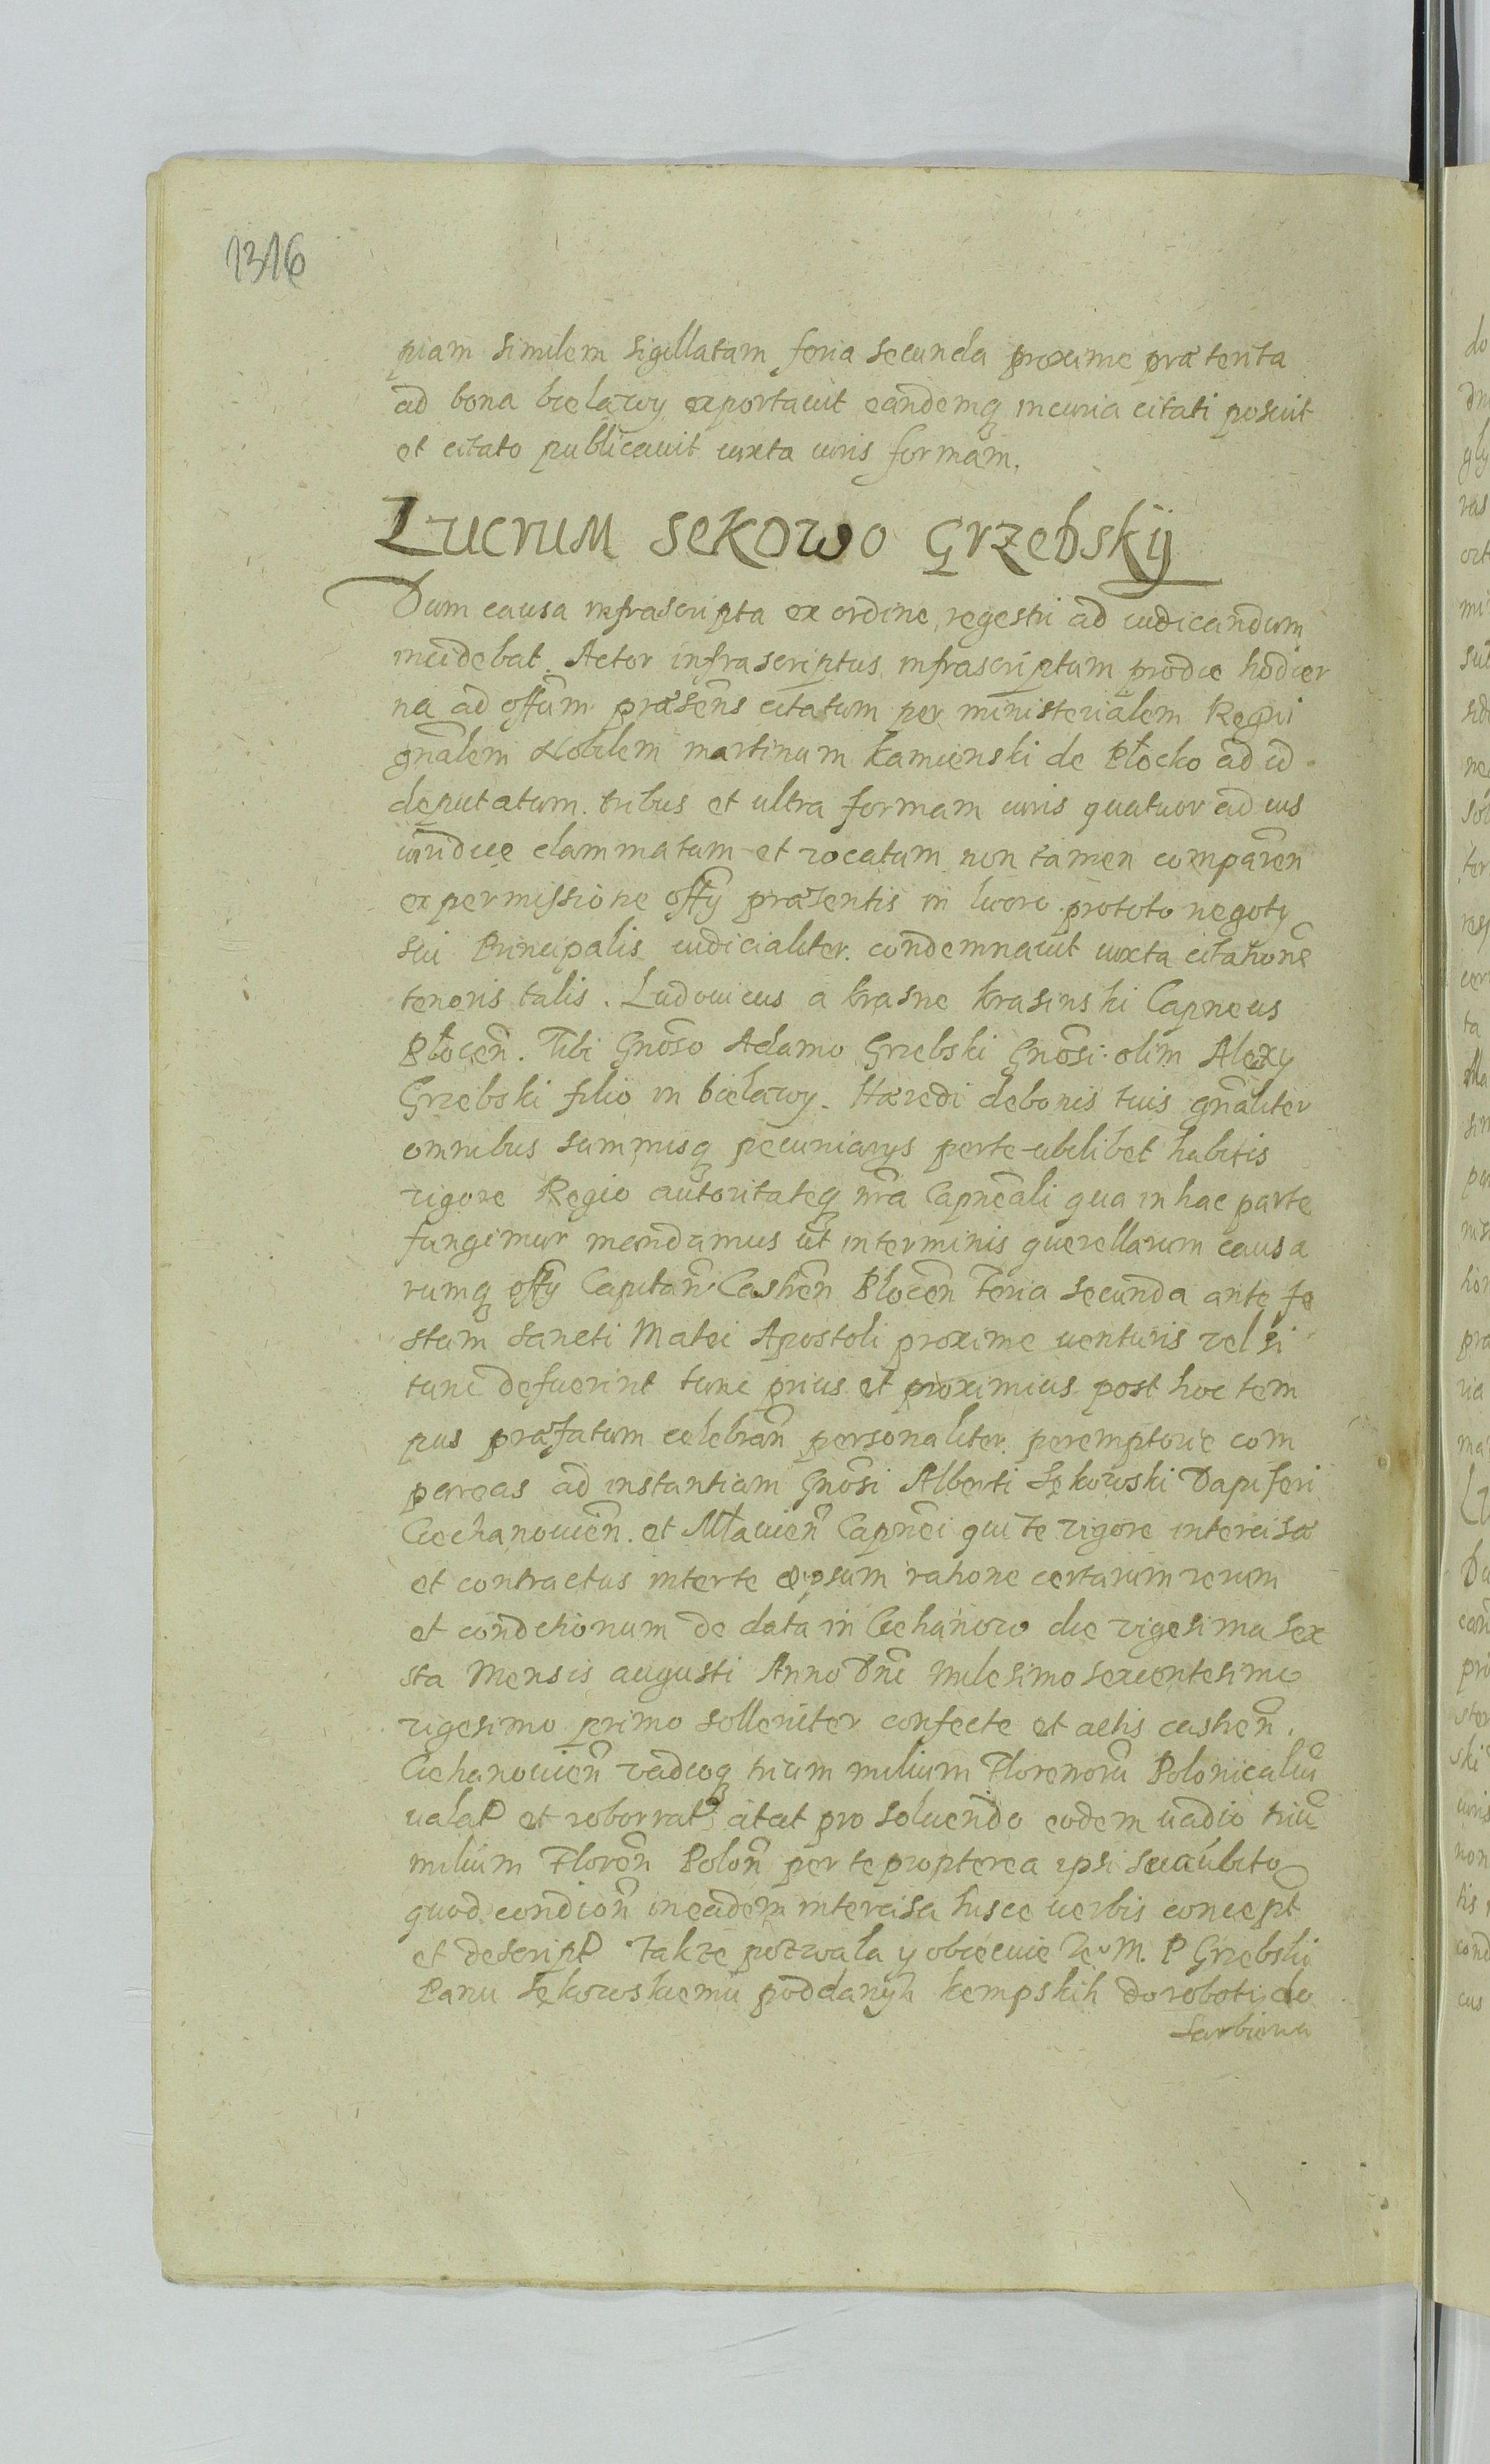 1316
piam similem sigillatam feria secunda proxime præterita
ad bona bielawy exportavit eandemq in curia citati posuit
et citato publicavit iuxta iuris formam.
Lucrum sekowo Grzebskij
Dum causa infrascripta ex ordine regestri ad iudicandum
incidebat. Actor infrascriptus infrascriptum pro die hodier
na ad offum præsens citatum per ministerialem Regni
gnalem Nobilem martinum kamienski de Płocko ad id
deputatum tribus et ultra formam iuris quatuor ad ius
iuridice clammatum et vocatum non tamen comparen
ex permissione offy præsentis in lucro pro toto negoty
sui Principalis iudicialiter condemnavit iuxta citatione
tenoris talis. Ludovicus a krasne krasinski Capneus
Płocen. Tibi Gnoso Adamo Grzebski Gnosi olim Alexy
Grzebski filio in bielawy. Hæredi de bonis tuis gnaliter
omnibus summisq pecuniarys per te ubilibet habitis
vigore Regio autoritateq nra Capneali qua in hac parte
fungimur mandamus ut in terminis querellarum causa
rumq offy Capitan Castren Plocen Feria secunda ante fe
stum sancti Matei Apostoli proxime venturis vel si
tunc defuerint tunc prius et proximius post hoc tem
pus præfatum celebran personaliter peremptorie com
pareas ad instantiam Gnosi Alberti Sękowski Dapiferi
Ciechanovien. et Mławien Capnei qui te vigore intercisæ
et contractus inter te et ipsum ratione certarum rerum
et condicionum de data in Ciechanow die vigesima sex
sta Mensis augusti Anno Dni milesimo sexcentesimo
vigesimo primo solleniter confecte et actis castren.
Ciechanovien vadioq trium milium Florenoru Polonicaliu
valat et roborrat citat pro solvendo eodem vadio triu
milium Floren Polon per te propterea ipsi succubito
quod condicion in eadem intercisa hisce verbis concept
et descript Takze pozwala y obiecuie Je M. P Grzebski
Panu Sękowskiemu poddanych kempskih do roboti do
Sarbiewa